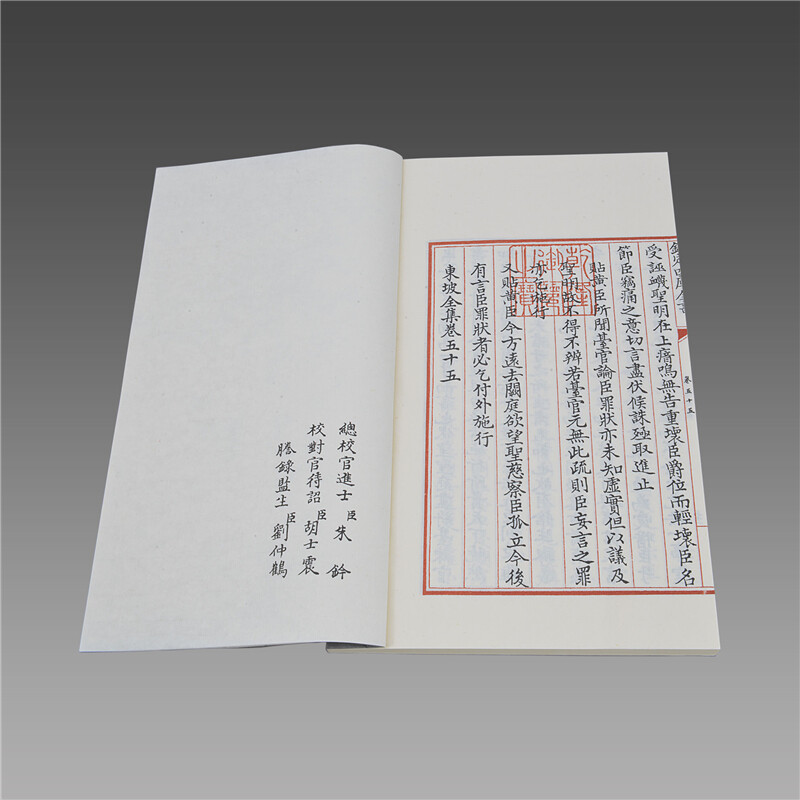 欽定四庫全書
受誣衊聖明在上瘖鳴無告重壞臣爵位而輕壞臣名
節臣竊痛之意切言盡伏候誅殛取進止
貼黃臣所聞臺官論臣罪狀亦未知虛實但以議及
聖明故不得不辨若臺官元無此疏則臣妄言之罪
亦乞施行
又貼黃臣今方遠去闕庭欲望聖慈察臣孤立今後
有言臣罪狀者必乞付外施行
東坡全集卷五十五
卷五十五
乾隆御覽之寶
總校官進士臣朱鈐
校對官待詔臣胡士震
謄錄監生臣劉仲鶴